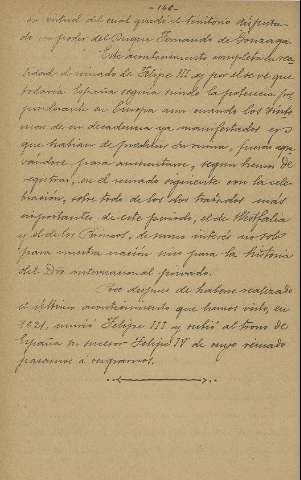 - 146 -
en virtud del cual quedó el territorio disputa-
do en poder del Duque Fernando de Gonzaga.
Este acontecimiento completa en rea-
lidad el reinado de Felipe III y por él se ve que
todavía España seguía siendo la potencia pre-
ponderante en Europa aun cuando los sínto-
mas de su decadencia ya manifestados y
que habían de producir su ruina, fueran agra-
vándose para aumentarse, según hemos de
registrar, en el reinado siguiente con la cele-
bración, sobre todo de los dos tratados más
importantes de este período, el de Westfalia
y el de los Pirineos, de sumo interés no solo
para nuestra nación sino para la historia
del Dro internacional privado.
Poco después de haberse realizado
el último acontecimiento que hemos visto, en
1621, murió Felipe III y subió al trono de
España su sucesor Felipe IV de cuyo reinado
pasamos a ocuparnos.